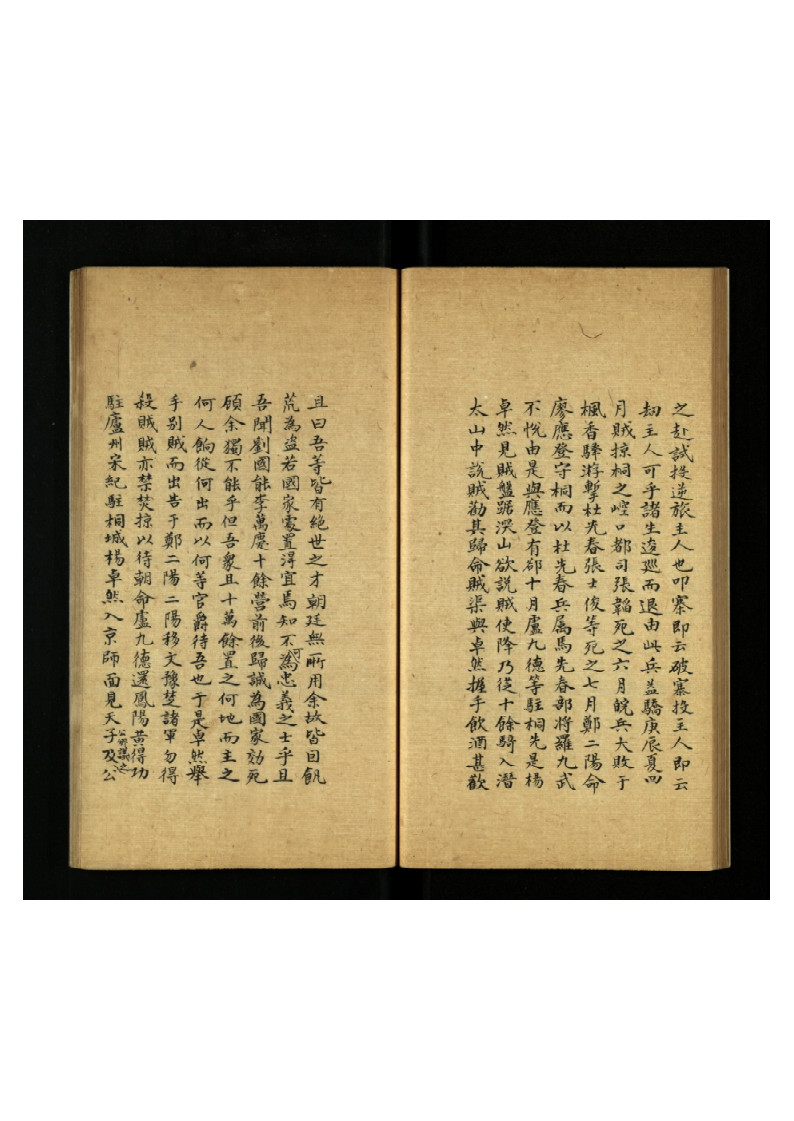 之赴試投逆旅主人也叩寨即云破寨投主人即云
刼主人可乎諸生逡廵而退由此兵益驕庚辰夏四
月賊掠桐之崆口都司張韜死之六月皖兵大敗于
楓香驛游擊杜先春張士俊等死之七月鄭二陽命
廖應登守桐而以杜先春兵属馬先春部将羅九武
不悅由是與應登有郤十月盧九德等駐桐先是楊
卓然見賊盤踞深山欲説賊使降乃從十餘騎入潛
太山中說賊勸其歸命賊渠與卓然握手飲酒甚歡
且曰吾等皆有絶世之才朝廷無所用余故皆因飢
荒為盜若國家處置得宜焉知不可為忠義之士乎且
吾聞劉國能李萬慶十餘營前後歸誠為國家効死
顧余獨不能乎但吾衆且十萬餘置之何地而主之
何人餉從何出而以何等官爵待吾也于是卓然舉
手别賊而出告于鄭二陽二陽移文豫楚諸軍勿得
殺賊賊亦禁焚掠以待朝命盧九德還鳳陽黄得功
駐廬州宋紀駐桐城楊卓然入京師面見天子及公